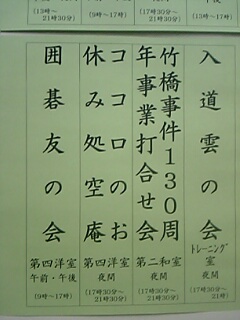 (13時～
21時30分)
(9時～17時)
(17時30分～
21時30分)
(13時～17時)
入道雲の会
トレーニング
室
夜間
(17時30分～
21時30分)
竹橋事件130周
年事業打合せ会
第二和室
夜間
(17時30分～
21時30分)
ココロのお
休み処空庵
第四洋室
夜間
(17時30分～
21時30分)
囲碁友の会
第四洋室
午前・午後
(9時～17時)